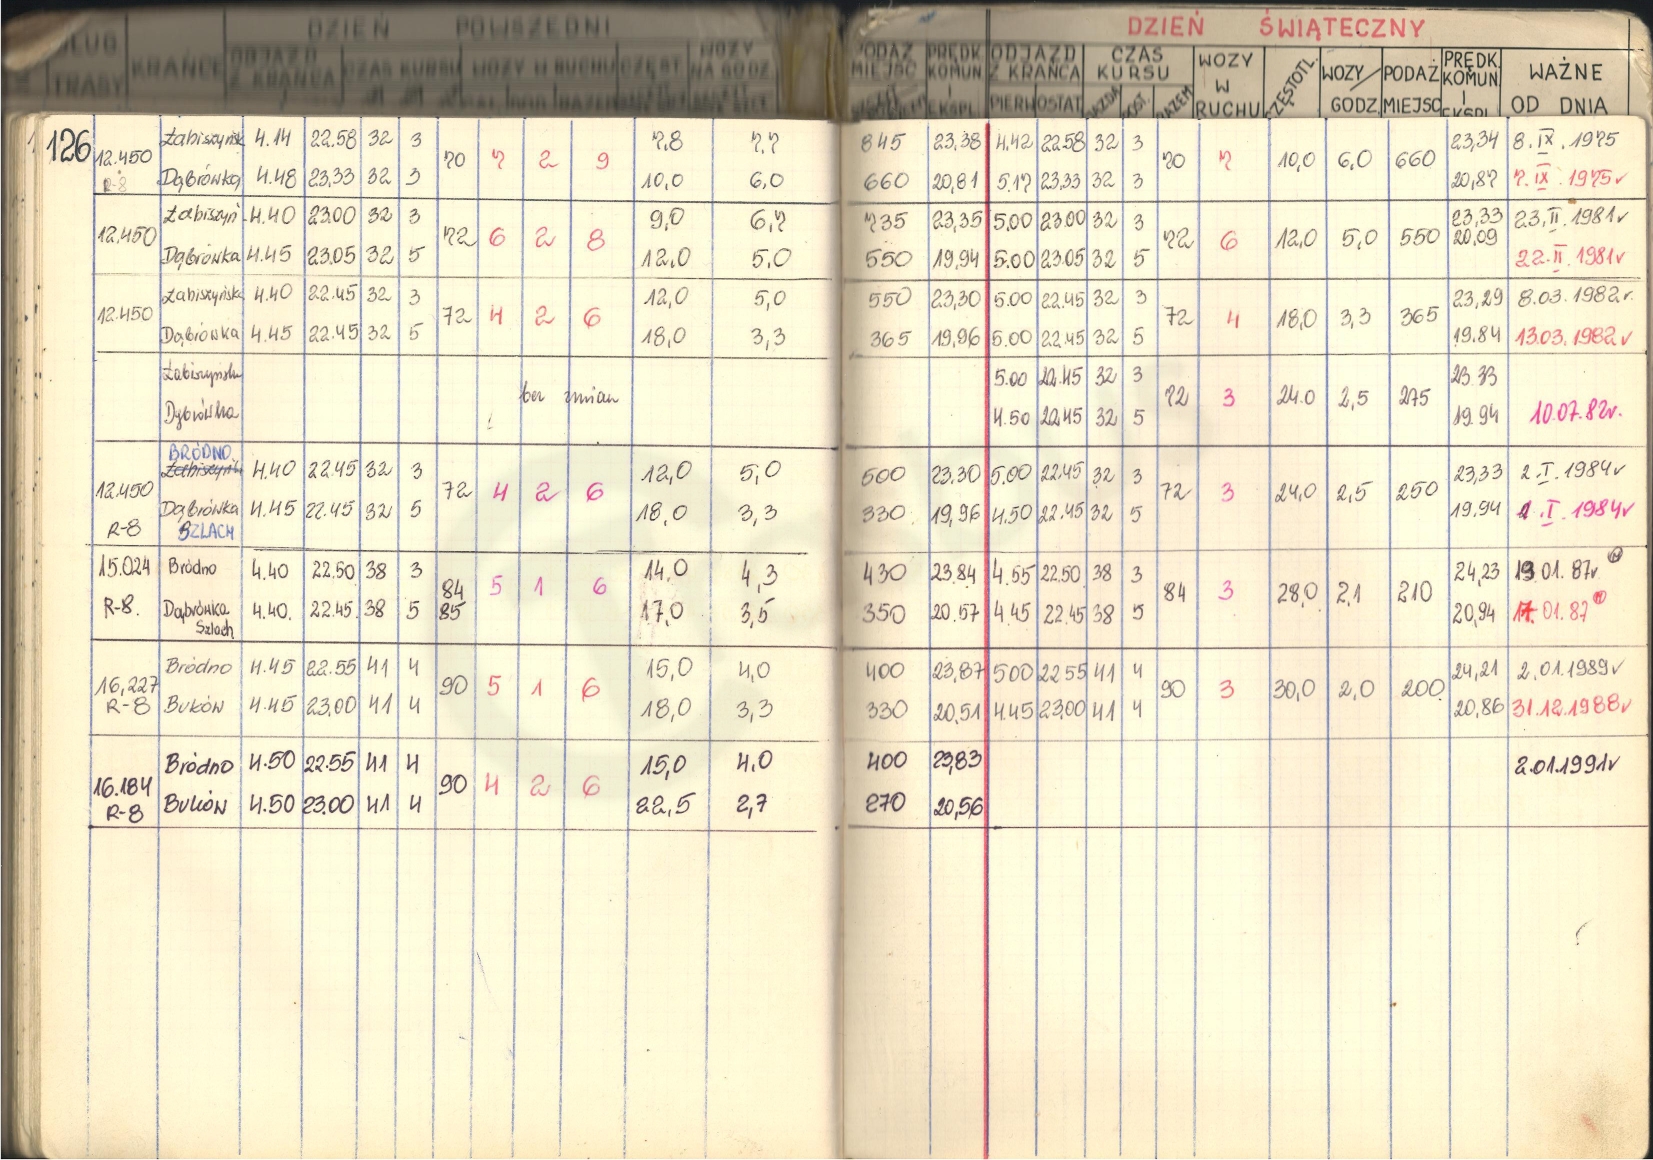 DZIEŃ POWSZEDNI
DZIEŃ ŚWIĄTECZNY
KRAŃCE ODJAZD Z KRAŃCA CZAS KURSU WOZY W RUCHU CZĘST. WOZY NA GODZ.
TRASY
PODAŻ MIEJSC PRĘDK. KOMUN. I EKSPL. ODJAZD Z KRAŃCA PIERW OSTAT. CZAS KURSU JAZDA POST. RAZEM WOZY W RUCHU CZĘSTOTL. WOZY/GODZ. PODAŻ MIEJSC PRĘDK. KOMUN. I EKSPL. WAŻNE OD DNIA
126
Łabiszyńsk 4.14 22.58 32 3 7,8 7,7 845 23,38 4.42 22.58 32 3 23,34 8.IX.1975
12.450 70 7 2 9 70 7 10,0 6,0 660
R-8 Dąbrówka 4.48 23,33 32 3 10,0 6,0 660 20,81 5.17 23.33 32 3 20,87 7.IX.1975r
Łabiszyń. 4.40 23.00 32 3 9,0 6,7 735 23,35 5.00 23.00 32 3 23,33 23.II.1981r
12.450 72 6 2 8 72 6 12,0 5,0 550 20,09
Dąbrówka 4.45 23.05 32 5 12,0 5,0 550 19,94 5.00 23.05 32 5 22.II.1981r
Łabiszyńska 4.40 22.45 32 3 12,0 5,0 550 23,30 5.00 22.45 32 3 23,29 8.03.1982r.
12.450 72 4 2 6 72 4 18,0 3,3 365
Dąbrówka 4.45 22.45 32 5 18,0 3,3 365 19,96 5.00 22.45 32 5 19.84 13.03.1982r
Łabiszyńska 5.00 22.45 32 3 23.33
bez zmian 72 3 24.0 2,5 275
Dąbrówka 4.50 22.45 32 5 19.94 10.07.82r.
BRÓDNO
Łabiszyńs 4.40 22.45 32 3 12,0 5,0 500 23,30 5.00 22.45 32 3 23,33 2.I.1984r
12.450 72 4 2 6 72 3 24,0 2,5 250
Dąbrówka 4.45 22.45 32 5 18,0 3,3 330 19,96 4.50 22.45 32 5 19.94 1.I.1984r
R-8 SZLACH
15.024 Bródno 4.40 22.50 38 3 14,0 4,3 430 23,84 4.55 22.50 38 3 24,23 19.01.87r
84 5 1 6 84 3 28,0 2,1 210
R-8. Dąbrówka 4.40. 22.45 38 5 85 17,0 3,5 350 20.57 4.45 22.45 38 5 20,94 17.01.87
Szlach
Bródno 4.45 22.55 41 4 15,0 4,0 400 23,87 5.00 22.55 41 4 24,21 2.01.1989r
16,227 90 5 1 6 90 3 30,0 2,0 200
R-8 Buków 4.45 23,00 41 4 18,0 3,3 330 20,51 4.45 23.00 41 4 20,86 31.12.1988r
Bródno 4.50 22.55 41 4 15,0 4.0 400 23,83 2.01.1991r
16.184 90 4 2 6
R-8 Buków 4.50 23.00 41 4 22,5 2,7 270 20,56